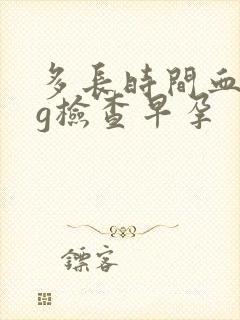 多長時間血
g檢查早孕
鏢客